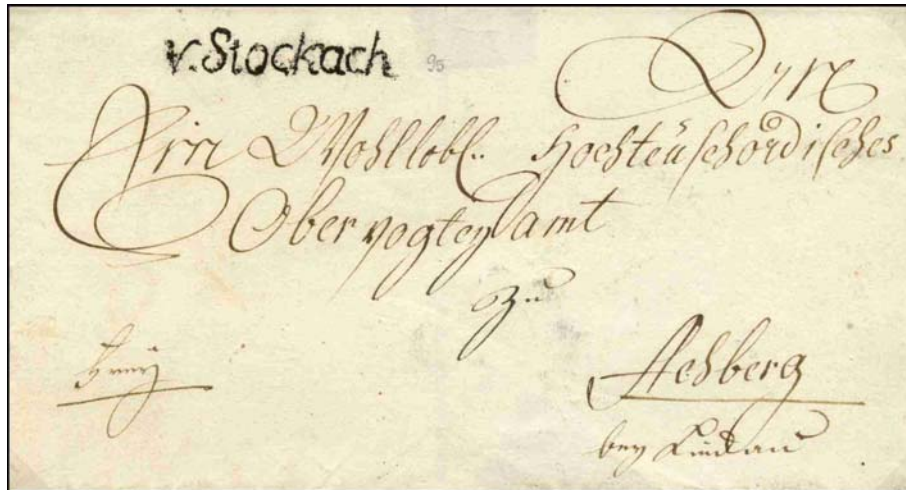 v. Stockach
95
Ein Wohllobl. Hochteuschordisches
Obervogteyamt
zu
frey
Achberg
bey Lindau